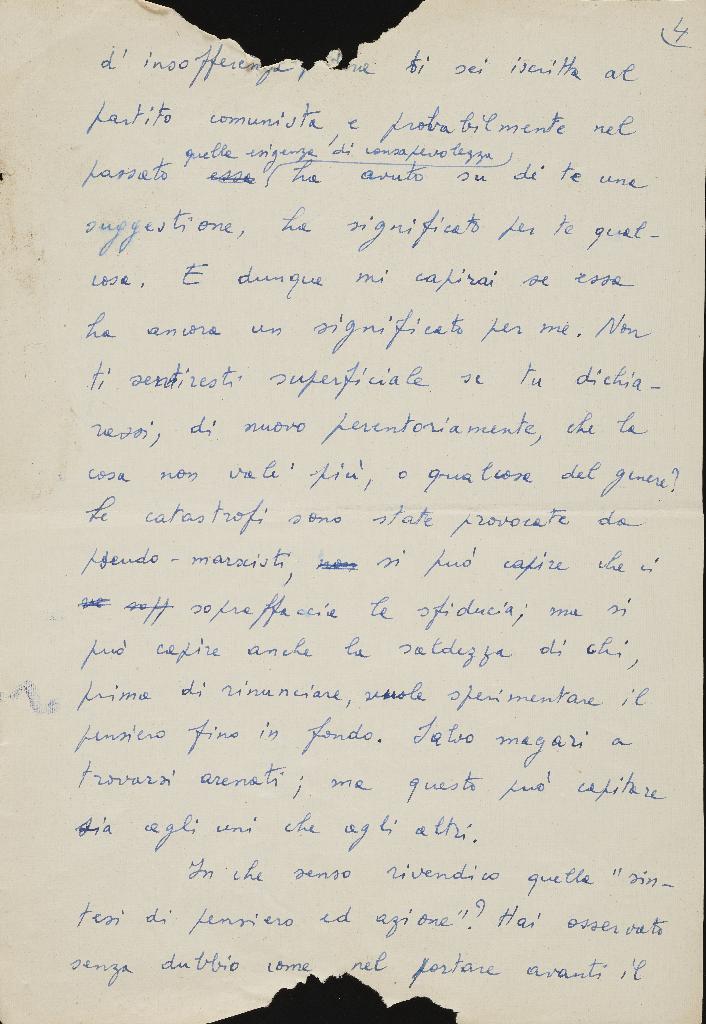 4
d'insofferenza, ti sei iscritta al
partito comunista, e probabilmente nel
quella esigenza di consapevolezza
passato essa ha avuto su di te una
suggestione, ha significato per te qual-
cosa. E dunque mi capirai se essa
ha ancora un significato per me. Non
ti sentiresti superficiale se tu dichia-
rassi, di nuovo perentoriamente, che la
cosa non vale più, o qualcosa del genere?
Le catastrofi sono state provocate da
pseudo-marxisti, non si può capire che ci
ve soff sopraffaccia la sfiducia; ma si
può capire anche la saldezza di chi,
prima di rinunciare, vuole sperimentare il
pensiero fino in fondo. Salvo magari a
trovarsi arenati; ma questo può capitare
sia agli uni che agli altri.
In che senso rivendico quella "sin-
tesi di pensiero ed azione"? Hai osservato
senza dubbio come nel portare avanti il